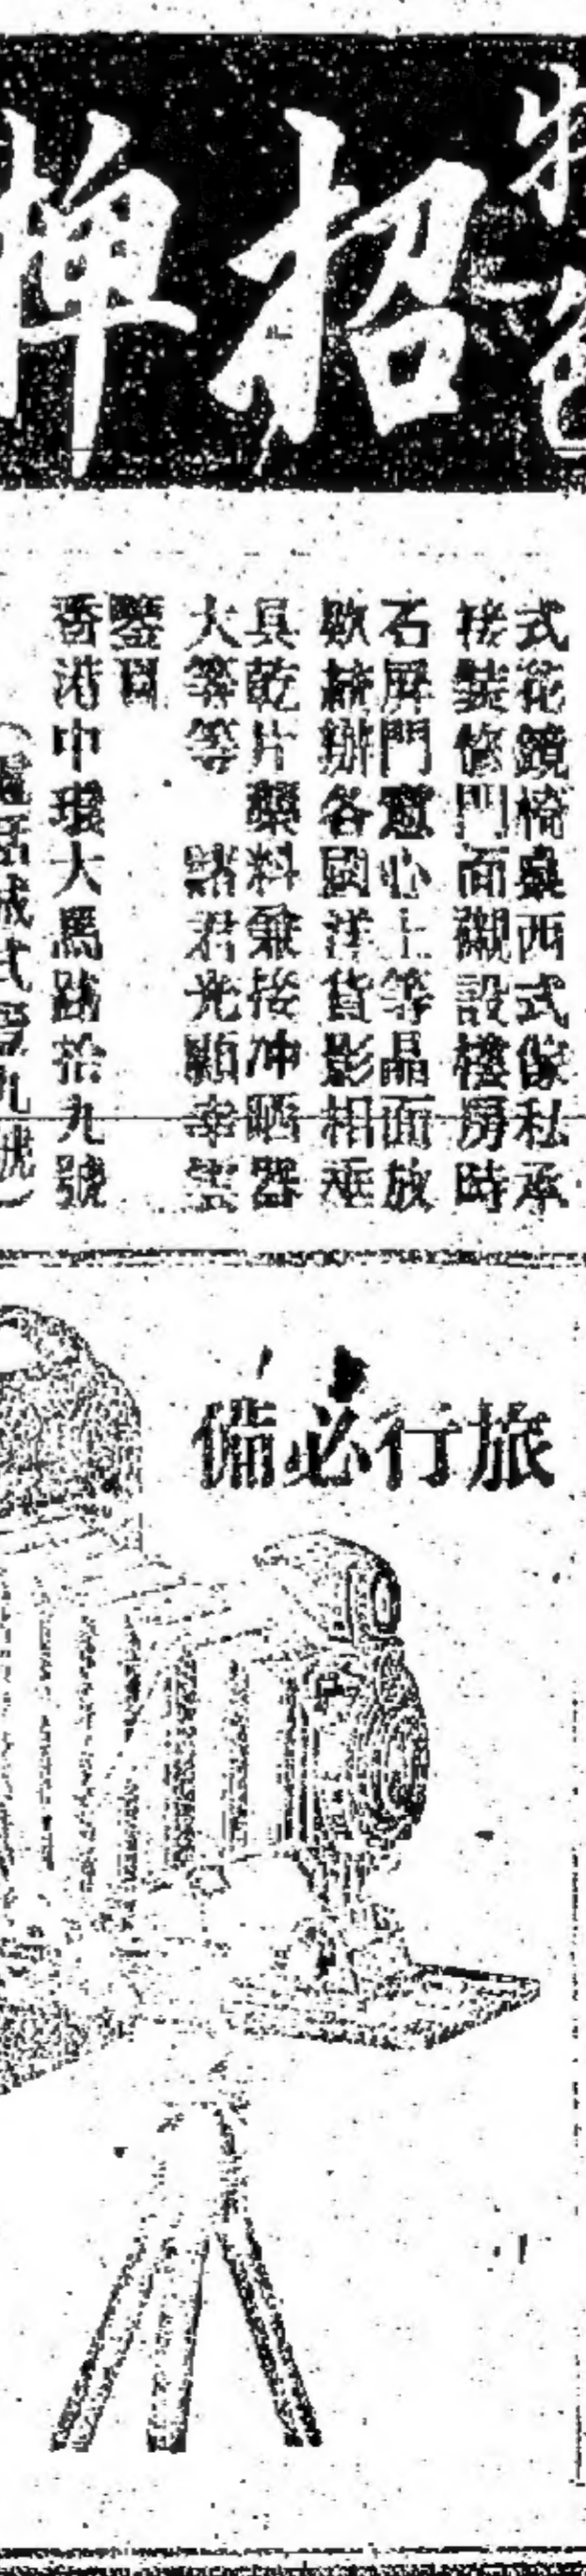 招牌
式花鏡椅桌西式傢私承
接裝修門面襯設樓房時
石屏門窻心上等晶面放
欵兼辦各國洋貨影相
具乾片藥料兼接冲晒器
大等等 諸君光顧幸
鑒
香港中環大馬路拾九號
旅行必備